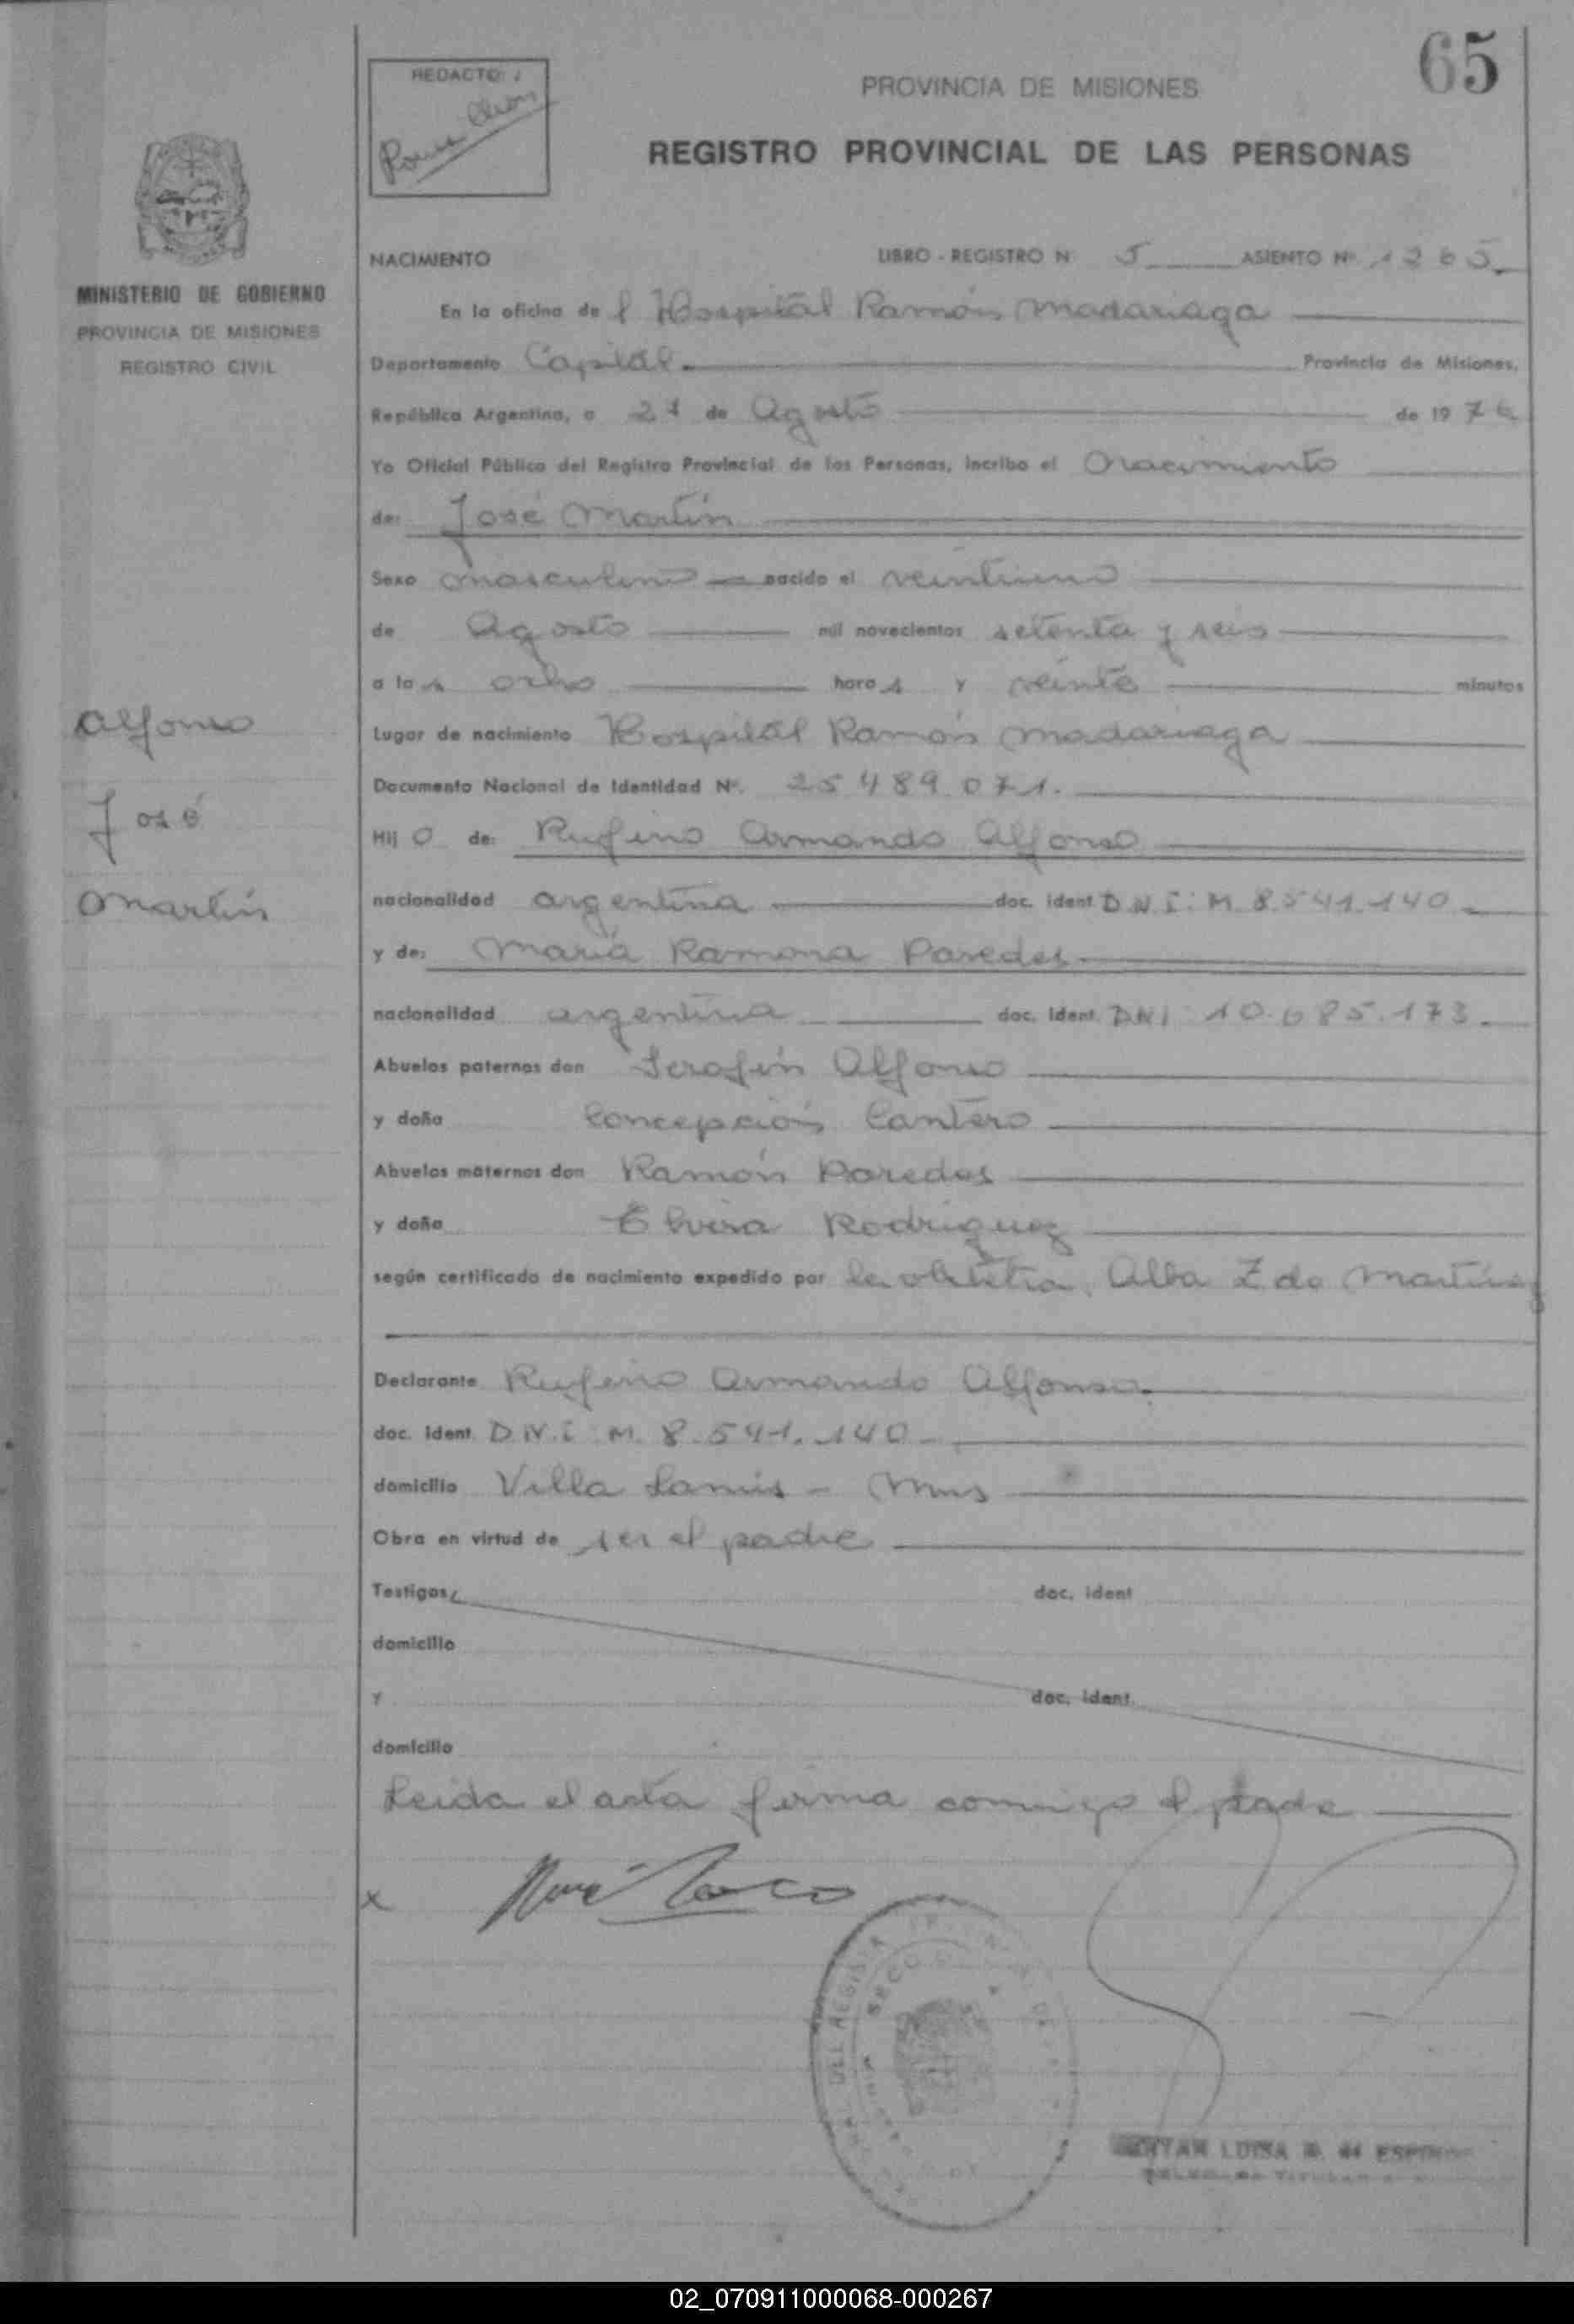 65
REDACTO:
PROVINCIA DE MISIONES
REGISTRO PROVINCIAL DE LAS PERSONAS
MINISTERIO DE GOBIERNO
PROVINCIA DE MISIONES
REGISTRO CIVIL
NACIMIENTO LIBRO - REGISTRO N 5 ASIENTO Nº 1265
En la oficina del Hospital Ramón Madariaga
Departamento Capital. Provincia de Misiones.
República Argentina, a 21 de Agosto de 1976
Yo Oficial Público del Registro Provincial de las Personas, incribo el nacimiento
de: José Martín
Sexo masculino nacido el veintiuno
de Agosto mil novecientos setenta y seis
a las ocho horas y veinte minutos
Alfonso
José
Martín
Lugar de nacimiento Hospital Ramón Madariaga
Documento Nacional de Identidad Nº. 25 489 071.
Hijo de: Rufino Armando Alfonso
nacionalidad argentina doc. ident D.N.I. M. 8.541.140
y de: María Ramona Paredes
nacionalidad argentina doc. ident. DNI 10.685.173
Abuelos paternos don Serafín Alfonso
y doña Concepción Cantero
Abuelos maternos don Ramón Paredes
y doña Elvira Rodriguez
según certificado de nacimiento expedido por la obstetra Alba Z de Martínez
Declarante Rufino Armando Alfonso.
doc. ident. D.N.I. M. 8.541.140
domicilio Villa Lanús - Mnes
Obra en virtud de ser el padre
Testigos doc. ident
domicilio
y doc. ident.
domicilio
Leida el acta firma conmigo el padre
x
LUISA
02_070911000068-000267